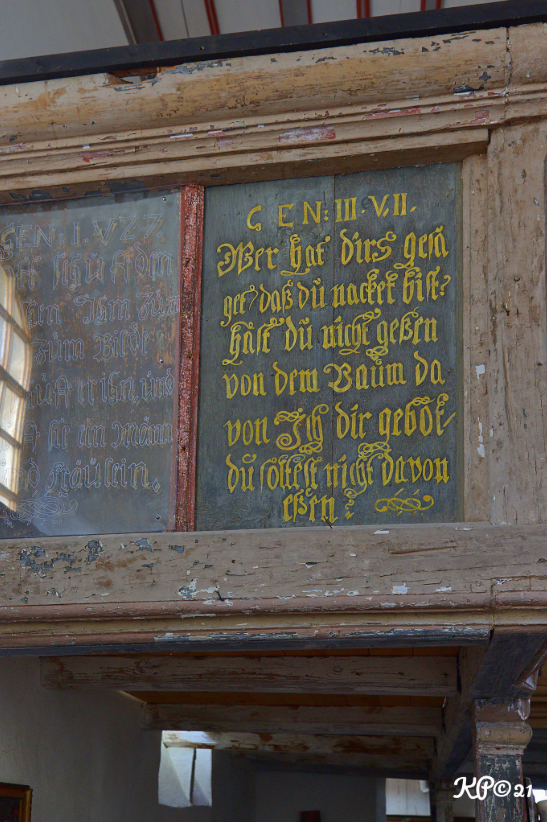 GEN: I. V 27
zum Bilde
er ihn, und
sie ein Männ
Fräulein.
GEN: III. V. II.
Wer hat dirs gesa
get? daß dŭ nacket bist?
hast dŭ nicht geßen
von dem Baŭm da
von Ich dir gebot/
dŭ soltest nicht davon
eßen?
KP©21